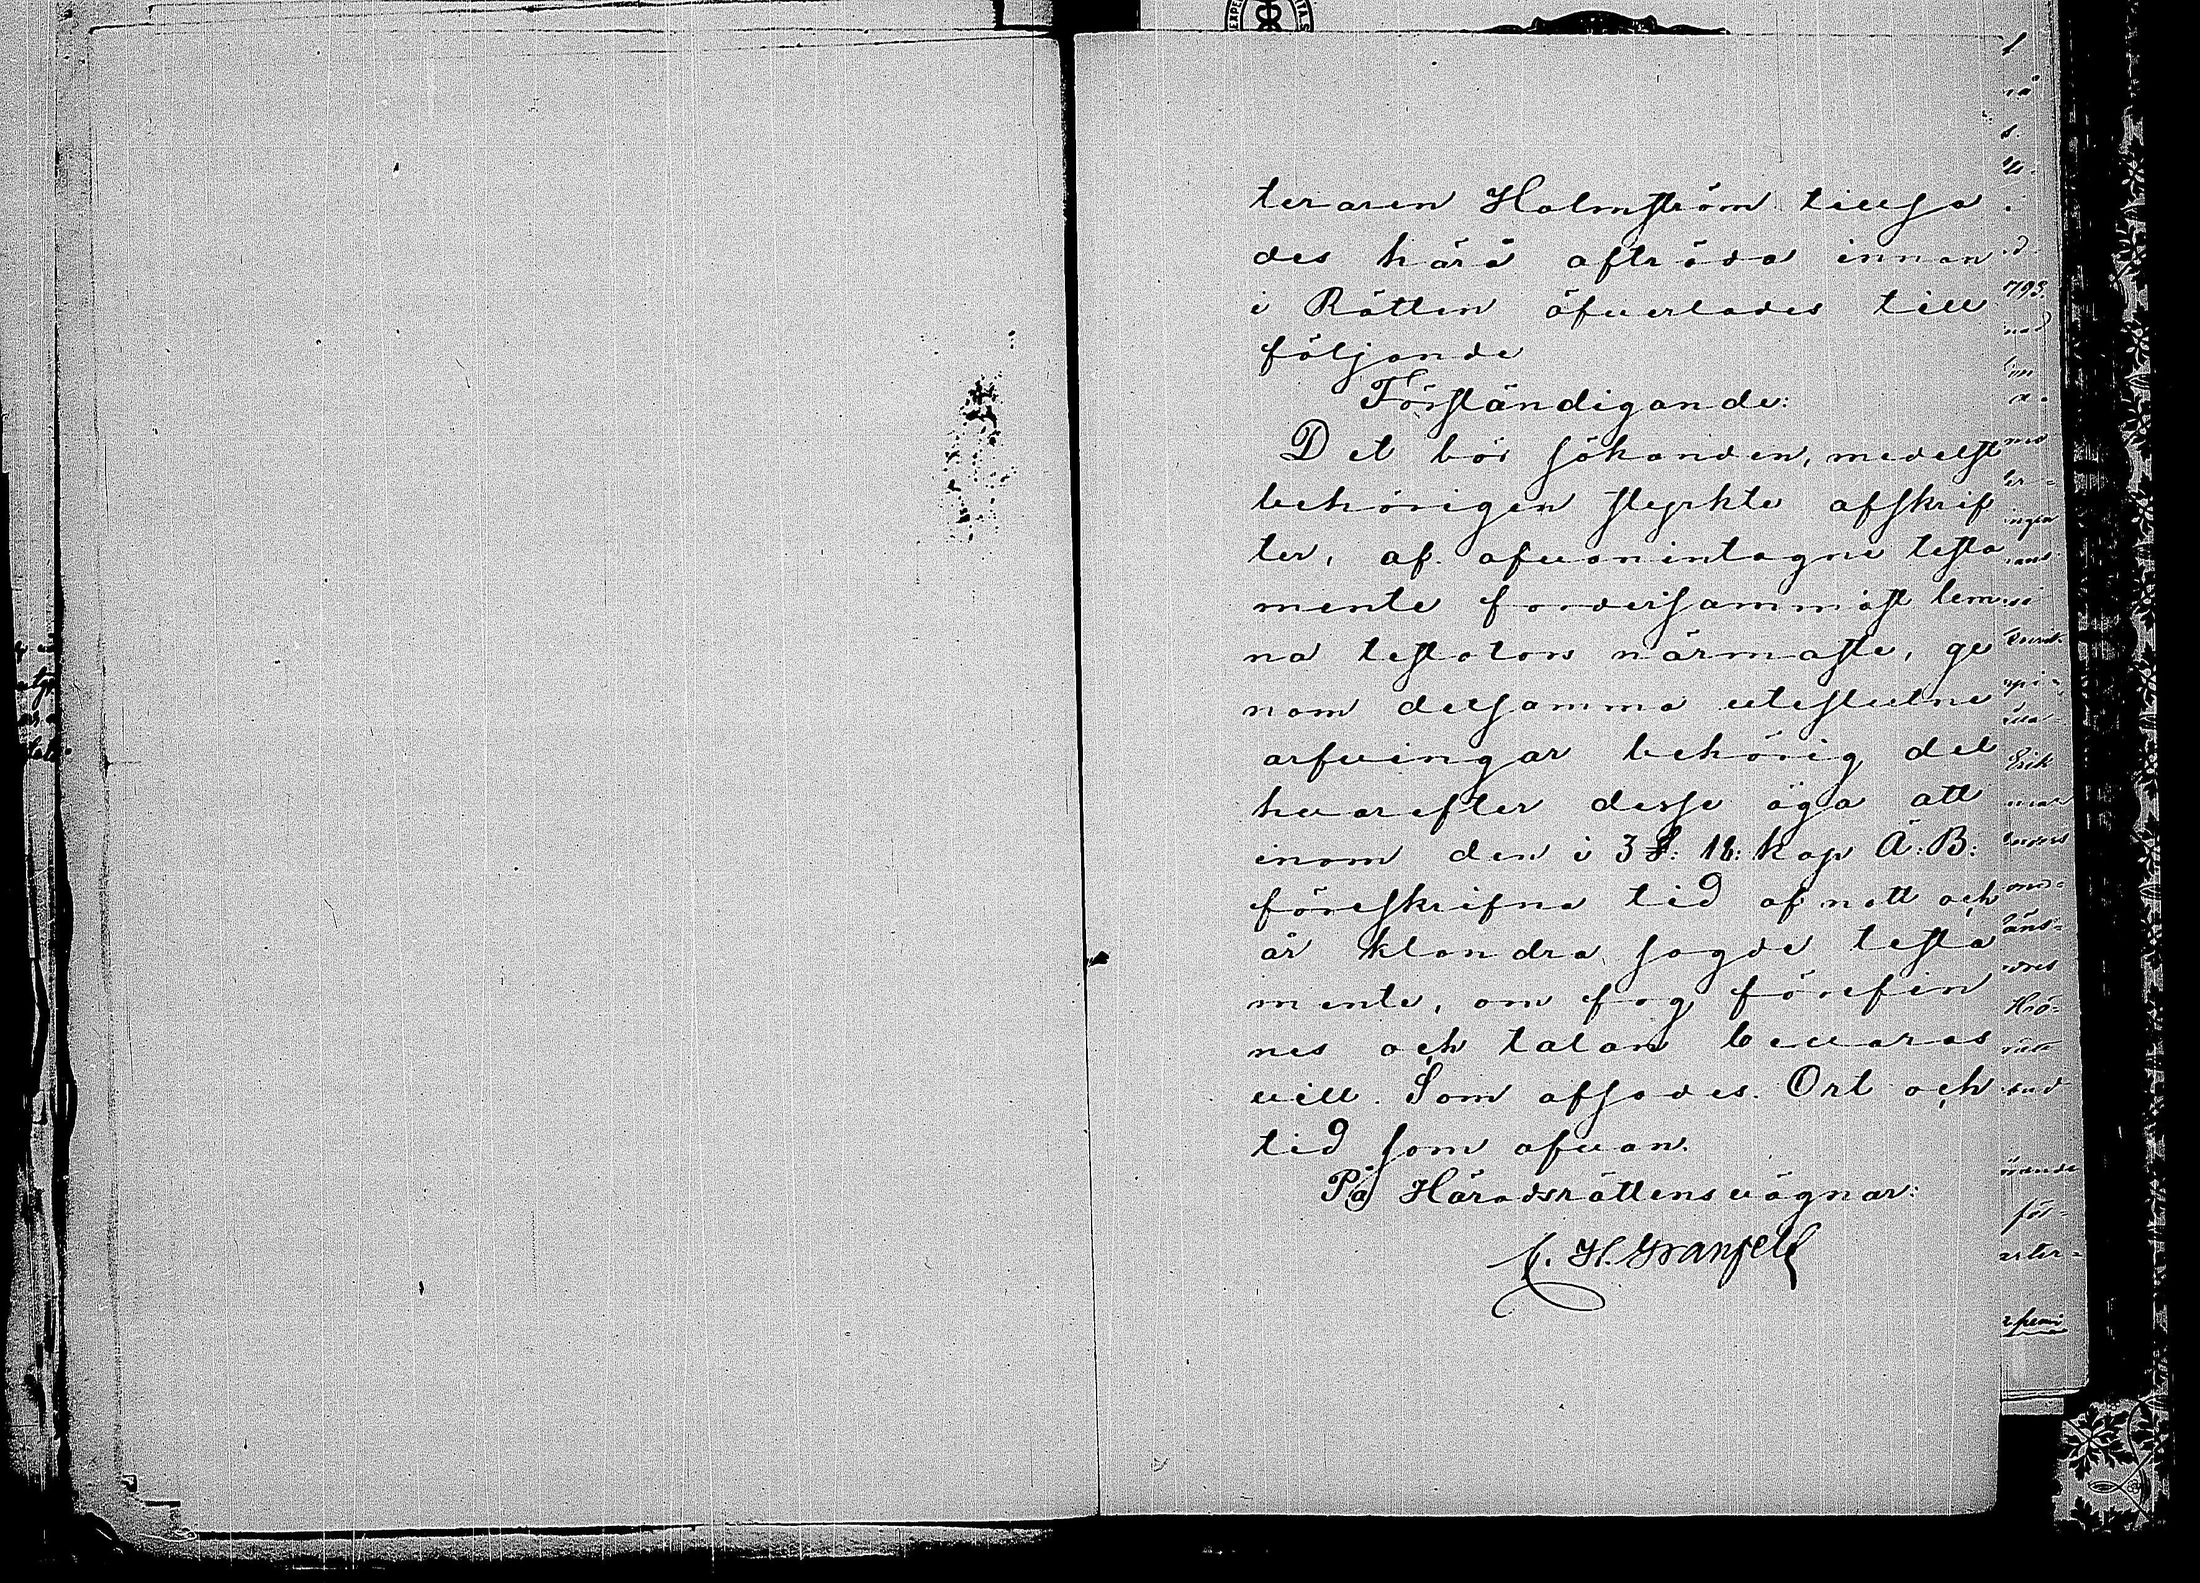 teraren Holmström tillsa
des härå afträda innan
i Rätten öfverlades till
följande
Förständigande:
Det bör sökanden, medelst
behörigen styrkte afskrif
ter, af ofvanintagne testa
mente fordersammast lem
na testators närmaste, ge
nom detsamma uteslutne
arfvingar behörig del
hvarefter desse äga att
inom den i 3 §: 18: Kap Ä: B:
föreskrifna tid af natt och
år klandra sagde testa
mente, om fog förefin
nes och talan bevaras
vill. Som afsades. Ort och
tid som ofvan.
På Häradsrättens vägnar:
793.
Erik